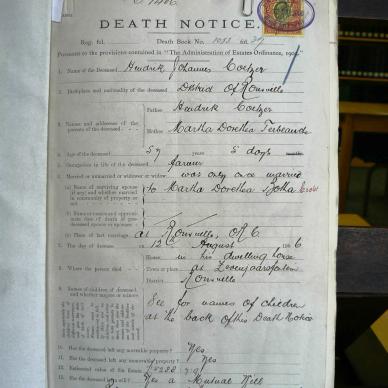 DEATH NOTICE.
Reg. fol. Death Book No.
Pursuant to the provisions contained in "The Administration of Estates Ordinance, 190
1. Name of the Deceased Hendrik Johannes Coetzer
2. Birthplace and nationality of the deceased District Of Rouxville
Father Hendrik Coetzer
3. Names and addresses of the parents of the deceased
Mother Martha Dorothea Terblanche
4. Age of the deceased 59 years 5 days
5. Occupation in life of the deceased farmer
6. Married or unmarried or widower or widow was only once married
(a) Name of surviving spouse to Martha Dorothea Botha
(if any) and whether married
in community of property or
not
(b) Name or names and approximate
date of death of
deceased spouse or spouses
(c) Place of last marriage at Rouxville, O R C.
7. The day of decease 12 August 6
House in his dwelling house
8. Where the person died Town or place at
District Rouxville
9. Names of children of deceased
and whether majors or minors
See for names of children
at the back of this Death Notice
10. Has the deceased left any movable property? Yes
11. Has the deceased left any immovable property? Yes
12. Estimated value of the Estate
13. Has the deceased left a Will? Yes a Mutual Will